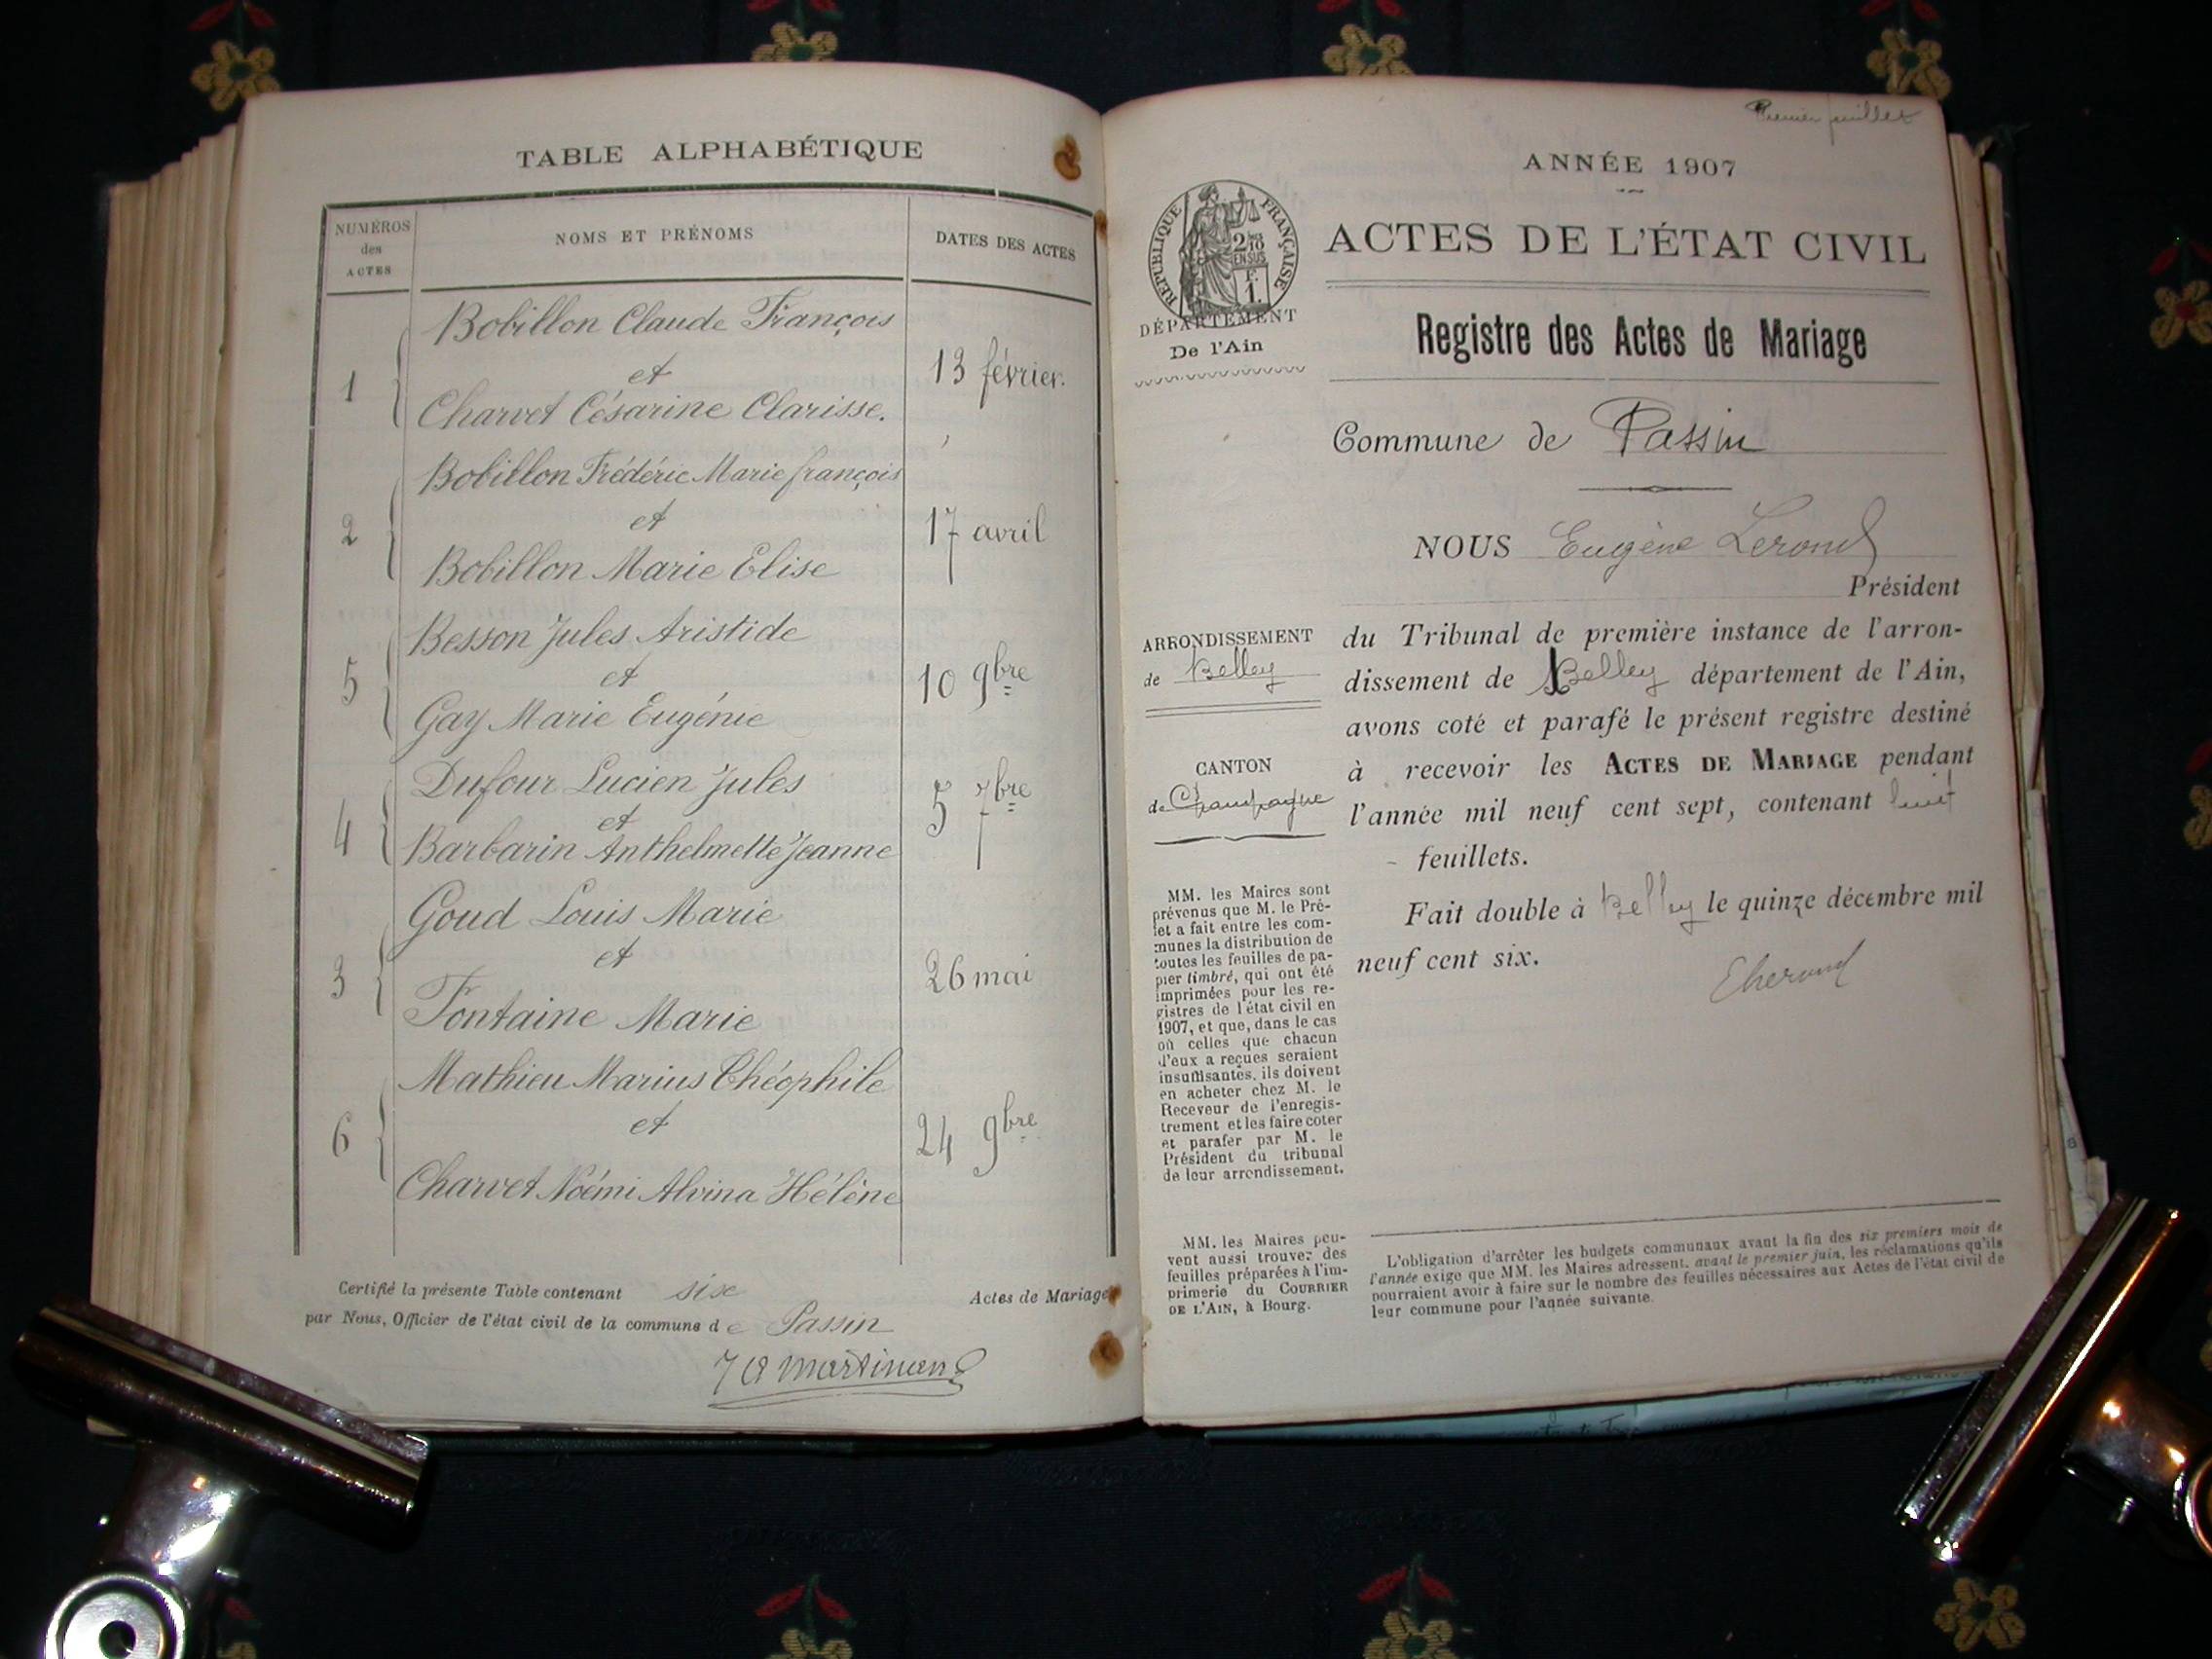 TABLE ALPHABÉTIQUE
NUMÉROS des ACTES
NOMS ET PRÉNOMS
DATES DES ACTES
Bobillon Claude François
1 et 13 février.
Charvet Césarine Clarisse.
Bobillon Frédéric Marie françois
2 et 17 avril
Bobillon Marie Elise
Besson Jules Aristide
5 et 10 9bre
Gay Marie Eugénie
Dufour Lucien Jules
4 et 5 7bre
Barbarin Anthelmette Jeanne
Goud Louis Marie
3 et 26 mai
Fontaine Marie
Mathieu Marius Théophile
6 et 24 9bre
Charvet Noémi Alvina Hélène
Certifié la présente Table contenant six Actes de Mariage
par Nous, Officier de l'état civil de la commune de Passin
Premier feuillet
ANNÉE 1907
RÉPUBLIQUE FRANÇAISE
DÉPARTEMENT
De l'Ain
ACTES DE L'ÉTAT CIVIL
Registre des Actes de Mariage
Commune de Passin
NOUS Eugène
Président
ARRONDISSEMENT
de Belley
CANTON
de Champagne
du Tribunal de première instance de l'arron-
dissement de Belley département de l'Ain,
avons coté et parafé le présent registre destiné
à recevoir les ACTES DE MARIAGE pendant
l'année mil neuf cent sept, contenant huit
feuillets.
Fait double à Belley le quinze décembre mil
neuf cent six.
MM. les Maires sont
prévenus que M. le Pré-
fet a fait entre les com-
munes la distribution de
toutes les feuilles de pa-
pier timbré, qui ont été
imprimées pour les re-
gistres de l'état civil en
1907, et que, dans le cas
où celles que chacun
d'eux a reçues seraient
insuffisantes, ils doivent
en acheter chez M. le
Receveur de l'enregis-
trement et les faire coter
et parafer par M. le
Président du tribunal
de leur arrondissement.
MM. les Maires peu-
vent aussi trouver des
feuilles préparées à l'im-
primerie du COURRIER
DE L'AIN, à Bourg.
L'obligation d'arrêter les budgets communaux avant la fin des six premiers mois de
l'année exige que MM. les Maires adressent, avant le premier juin, les réclamations qu'ils
pourraient avoir à faire sur le nombre des feuilles nécessaires aux Actes de l'état civil de
leur commune pour l'année suivante.